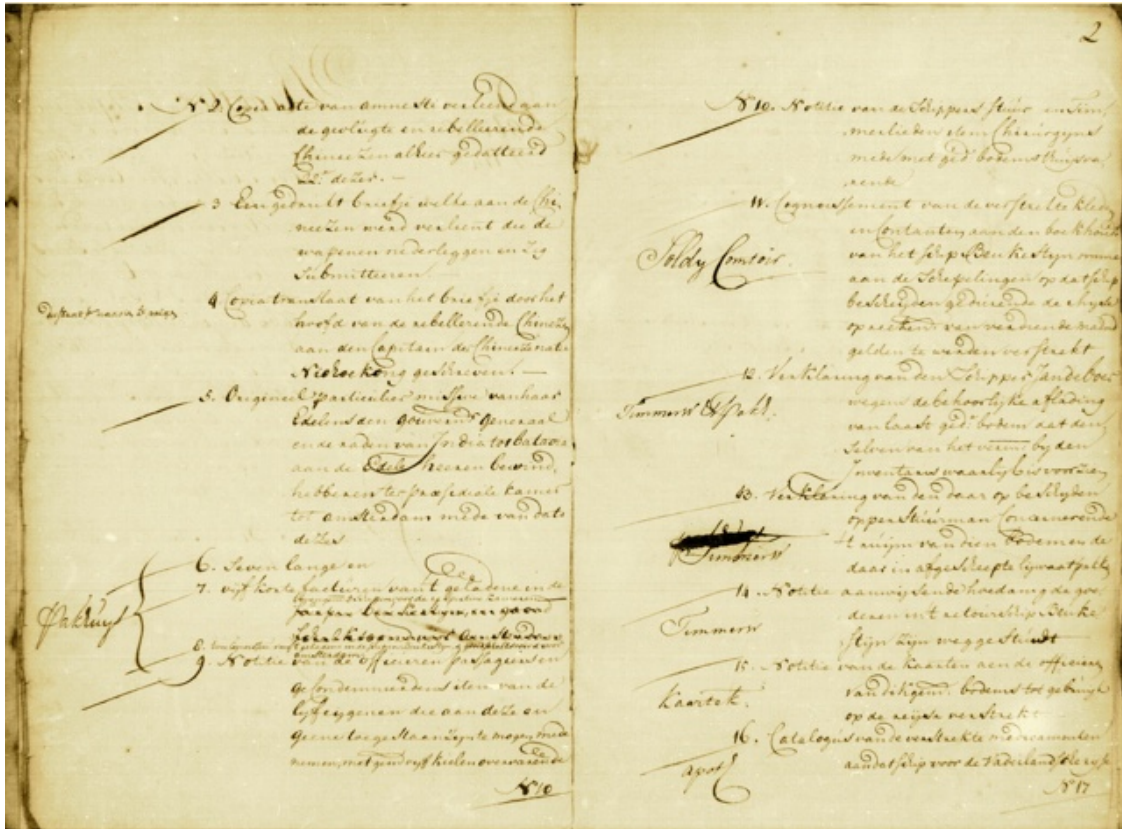 N.o 2. Copia acte van amnestie verleend aan
de gevlugte en rebelleerende
Chineezen alhier gedatteerd
22.e dezer. —
3 Een gedrukt briefje welke aan de Chi-
neezen werd verleent die de
wapenen nederleggen en zig
submitteeren. —
4. Copia translaat van het briefje door het
hoofd van de rebelleerende Chineezen
aan den Capitain der Chineezen
Niehoekong geschreven. —
5. Origineel particulier missive van haar
Edelens den gouvern.r Generaal
en de raden van India tot Batavia
aan de Edele heeren bewind-
hebberen ter præsidiale kamer
tot Amsterdam mede van dato
dezes
Pakhuys
6. Seven lange en
7. vijf korte facturen van 't geladene in de
8.
9. Notitie van de officieren passagiers en
gecondemneerdens item van de
lyfeygenen die aan deze en
geene toegestaan zyn te mogen mede
nemen, met gem. vyf kielen overvarende
N.o 10
2
N.o 10. Notitie van de schippers stuur en tim-
merlieden item Chirurgyns
mede met ged. bodems t'huysva-
rende
11. Cognoissement van de verstrekte kleden
en Contanten aan den boekhouder
van het schip Beukesteyn omme
aan de Schepelingen op dat schip
bescheyden geduurende de rhyse
op reekeng. van verdiende maand
gelden te werden verstrekt
Soldy Comtoir.
12. Verklaring van den Schipper Jan de Boer
wegens de behoorlyke aflading
van laast ged. bodem dat den
selven van het verm. by den
Inventaris waarlyk is voorzien
Timmerw & Pakh.
13. Verklaring van den daar op bescheyden
opperstuurman Concerneerende
't ruym van dien bodem en de
daar in afgescheepte lywaatpakken
Timmerw
14. Notitie aanwysende hoedanig de goe-
deren in 't retourschip Beuke
steyn zyn weggestuwdt
Timmerw
15. Notitie van de kaarten aan de officieren
van dik gem. bodems tot gebruyk
op de reyse verstrekt
Kaartek.
16. Catalogus van de verstrekte medicamenten
aan dat schip voor de vaderlandsche reyse
apoth
N.o 17